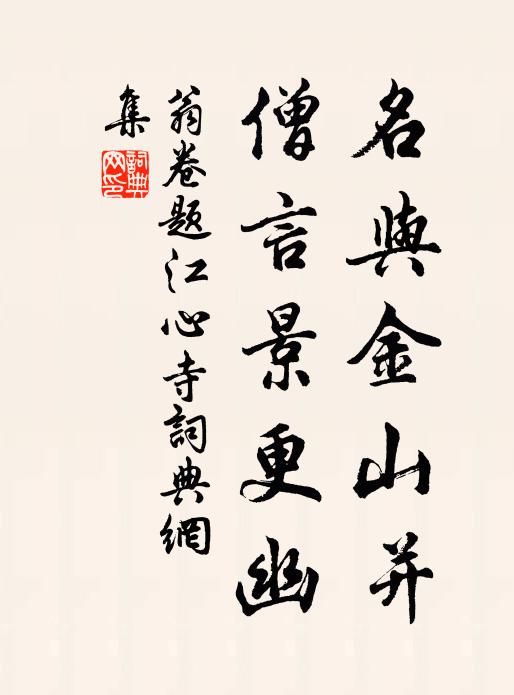 名與金山并
僧言景更幽
翁卷題江心寺詞典網
集
詞典
网印